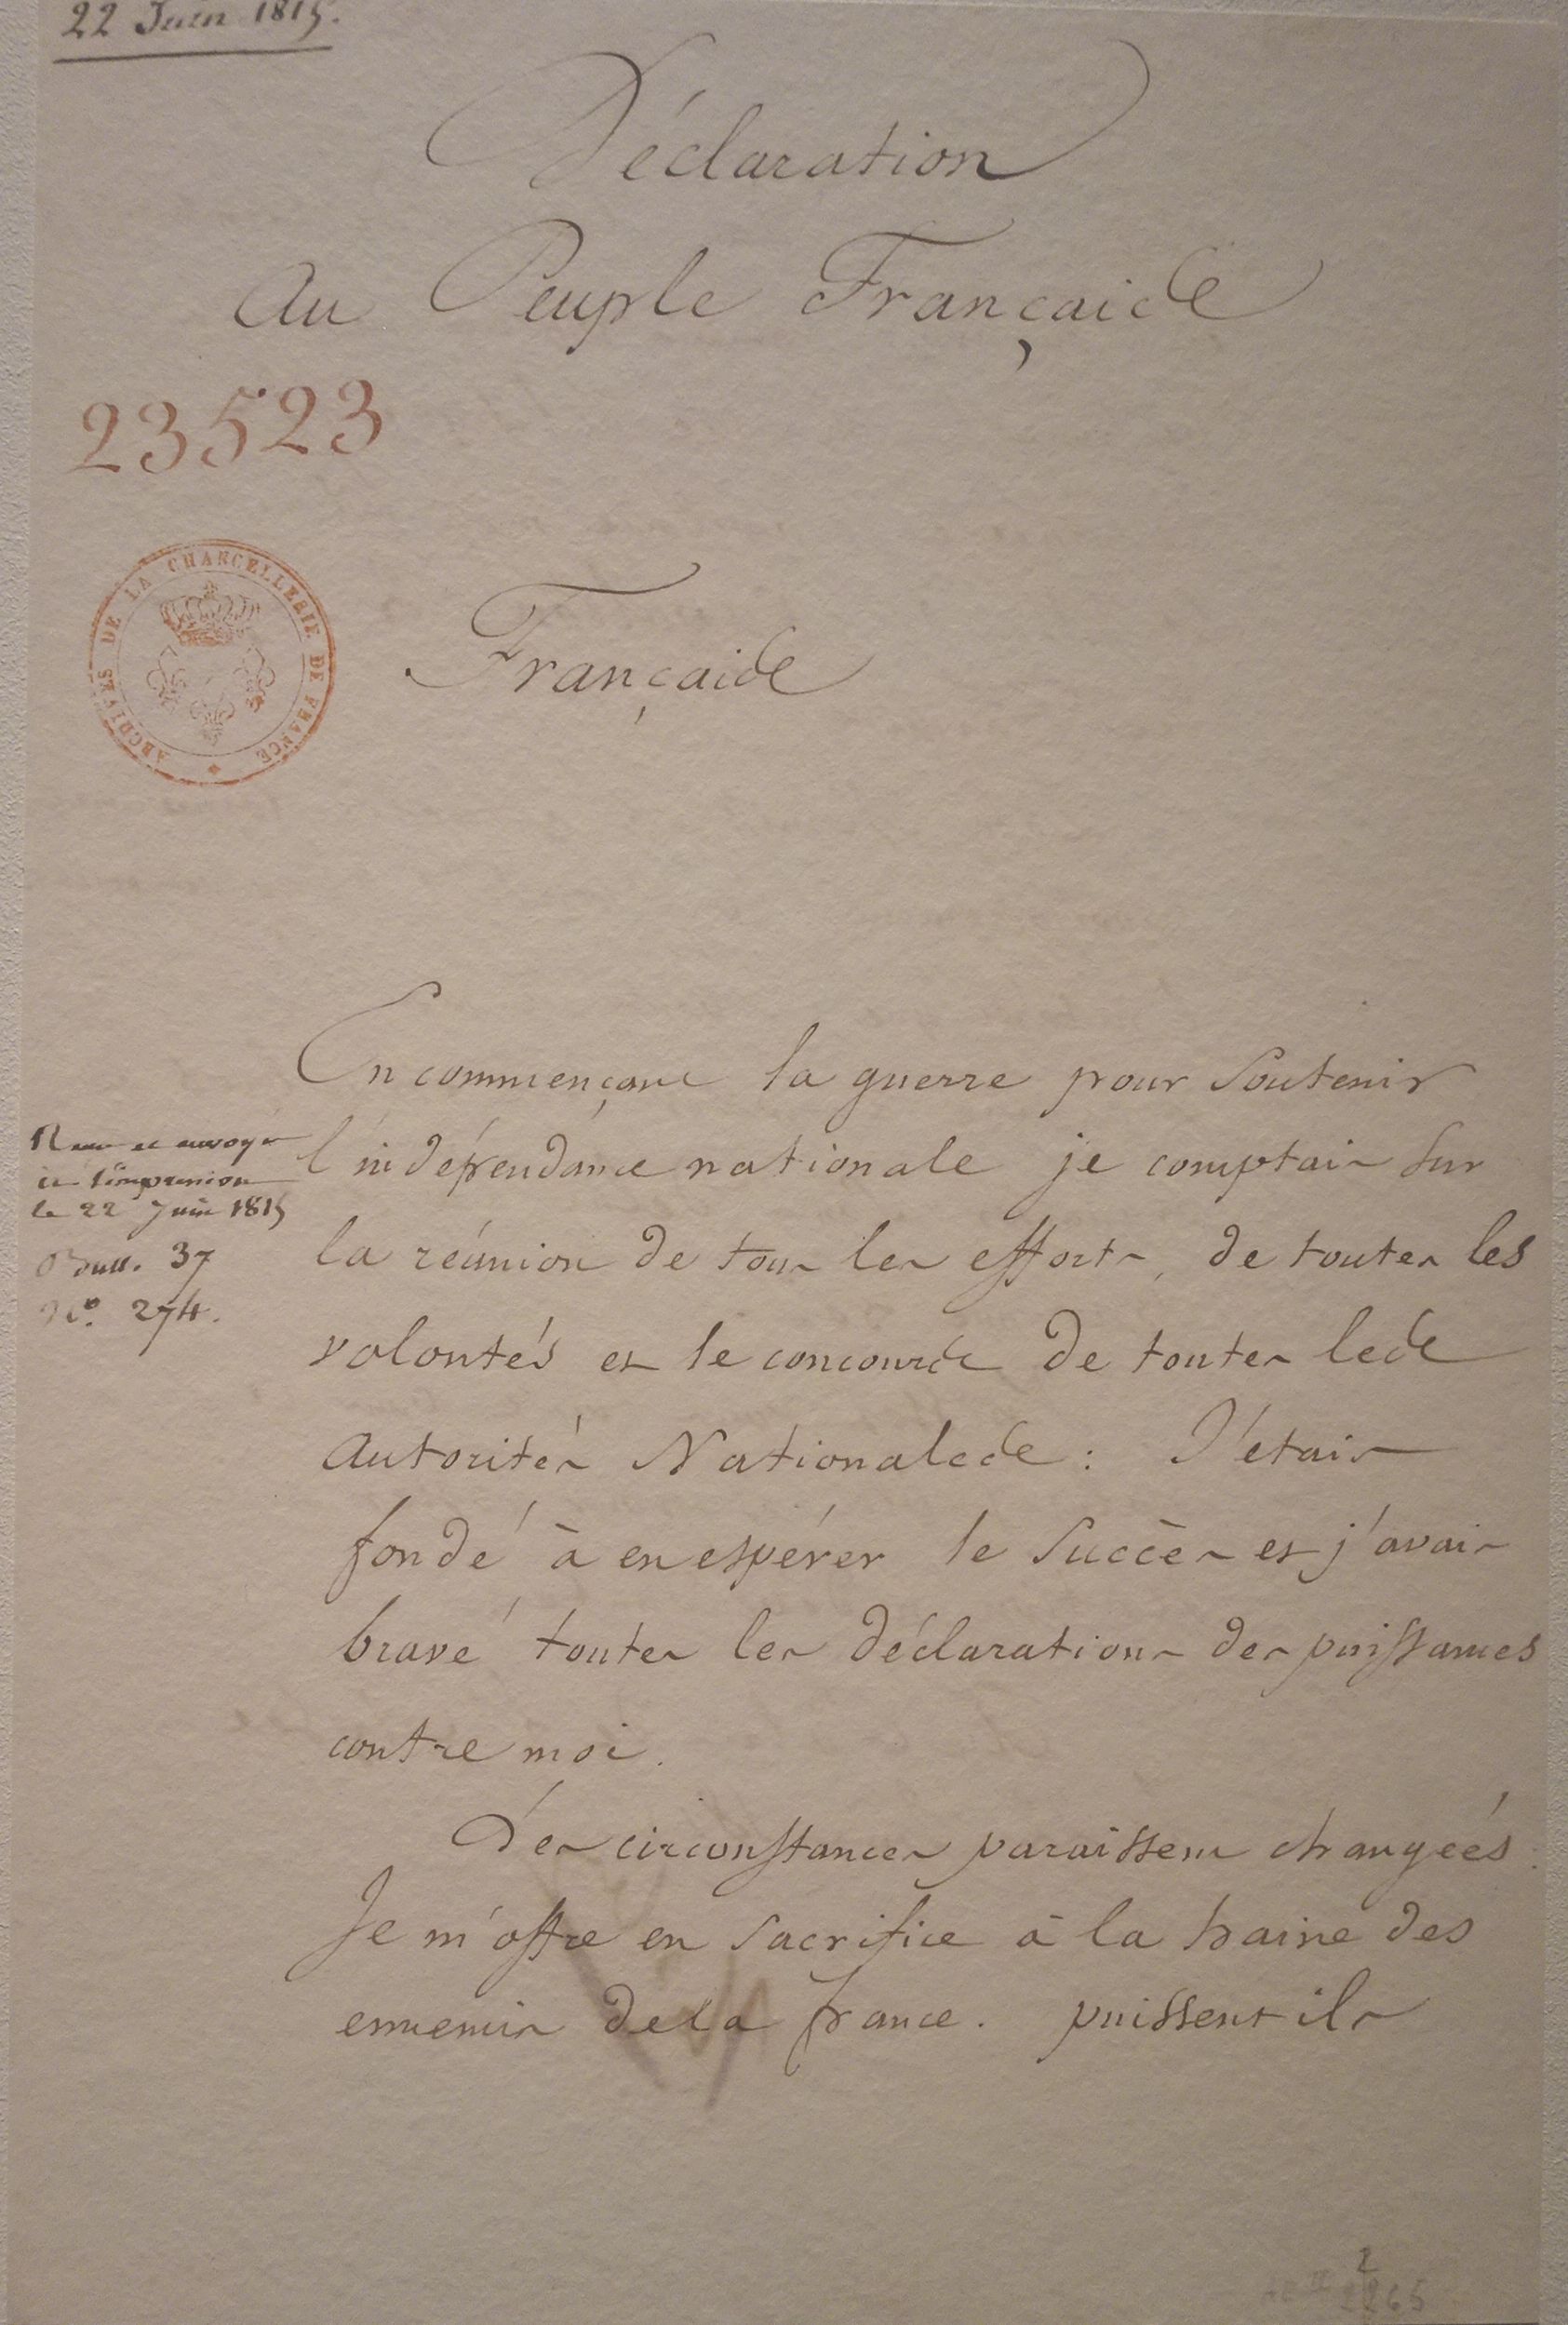 22 Juin 1815.
Déclaration
Au Peuple Français
23523
ARCHIVES DE LA CHANCELLERIE DE FRANCE
Français
En commençant la guerre pour Soutenir
l'indépendance nationale je comptais Sur
la réunion de tous les efforts, de toutes les
volontés et le concours de toutes les
Autorités Nationales : J'étais
fondé à en espérer le Succès et j'avais
bravé toutes les déclarations des puissances
contre moi.
Les circonstances paraissent changées :
Je m'offre en Sacrifice à la haine des
ennemis de la france. puissent ils
et envoyé
à l'impression
le 22 Juin 1815
Bull. 37
N°. 274.
2
2265